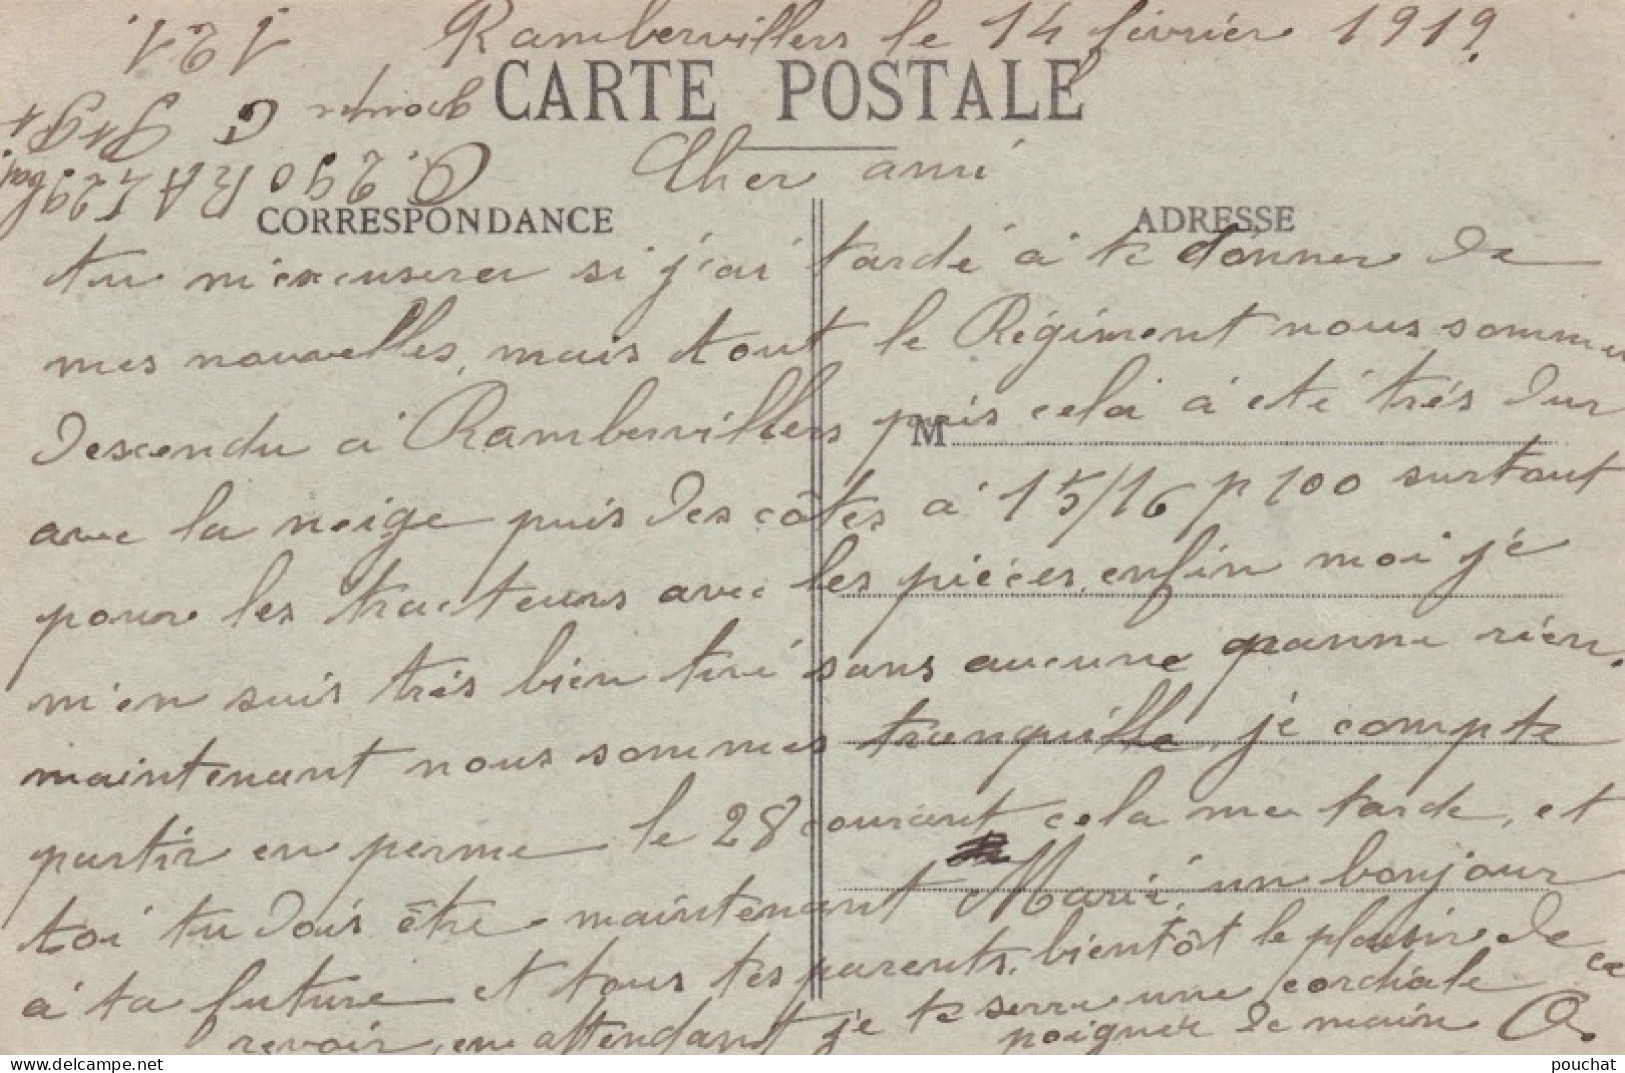 Rambervillers le 14 février 1919.
CARTE POSTALE
Cher ami
CORRESPONDANCE
ADRESSE
tu m'excuserer si j'ai tardé à te donner de
mes nouvelles, mais tout le Régiment nous sommes
descendu à Rambervillers puis cela à été très dur
M
avec la neige puis des côtes à 15/16 p 100 surtout
pour les tracteurs avec les pièces, enfin moi je
m'en suis très bien tiré sans aucune panne rien.
maintenant nous sommes tranquille, je compte
partir en perme le 28 courant cela me tarde, et
toi tu dois être maintenant Marié, un bonjour
à ta future et tous tes parents, bientôt le plaisir de ce
revoir, en attendant je te serre une cordiale
poignée de main O.
O. 290 RAL 229
121.
pouchat